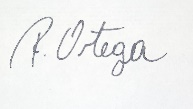 R. Ortega